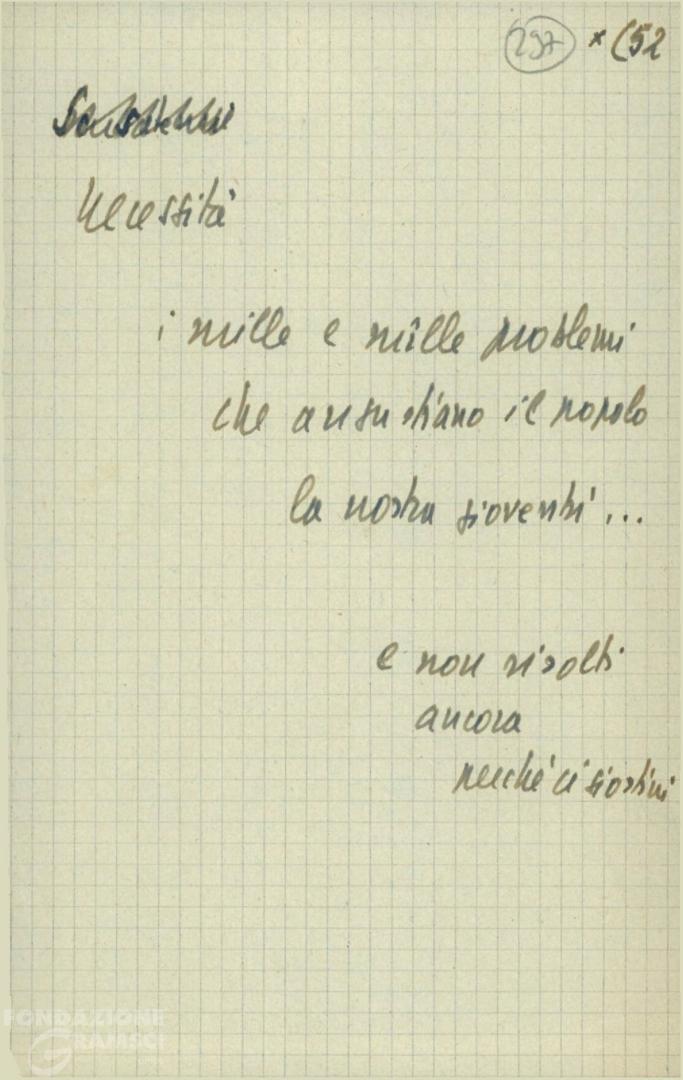 297 * (52
Necessità
i mille e mille problemi
che angustiano il popolo
la nostra gioventù...
e non risolti
ancora
perché ci si ostini
FONDAZIONE
GRAMSCI